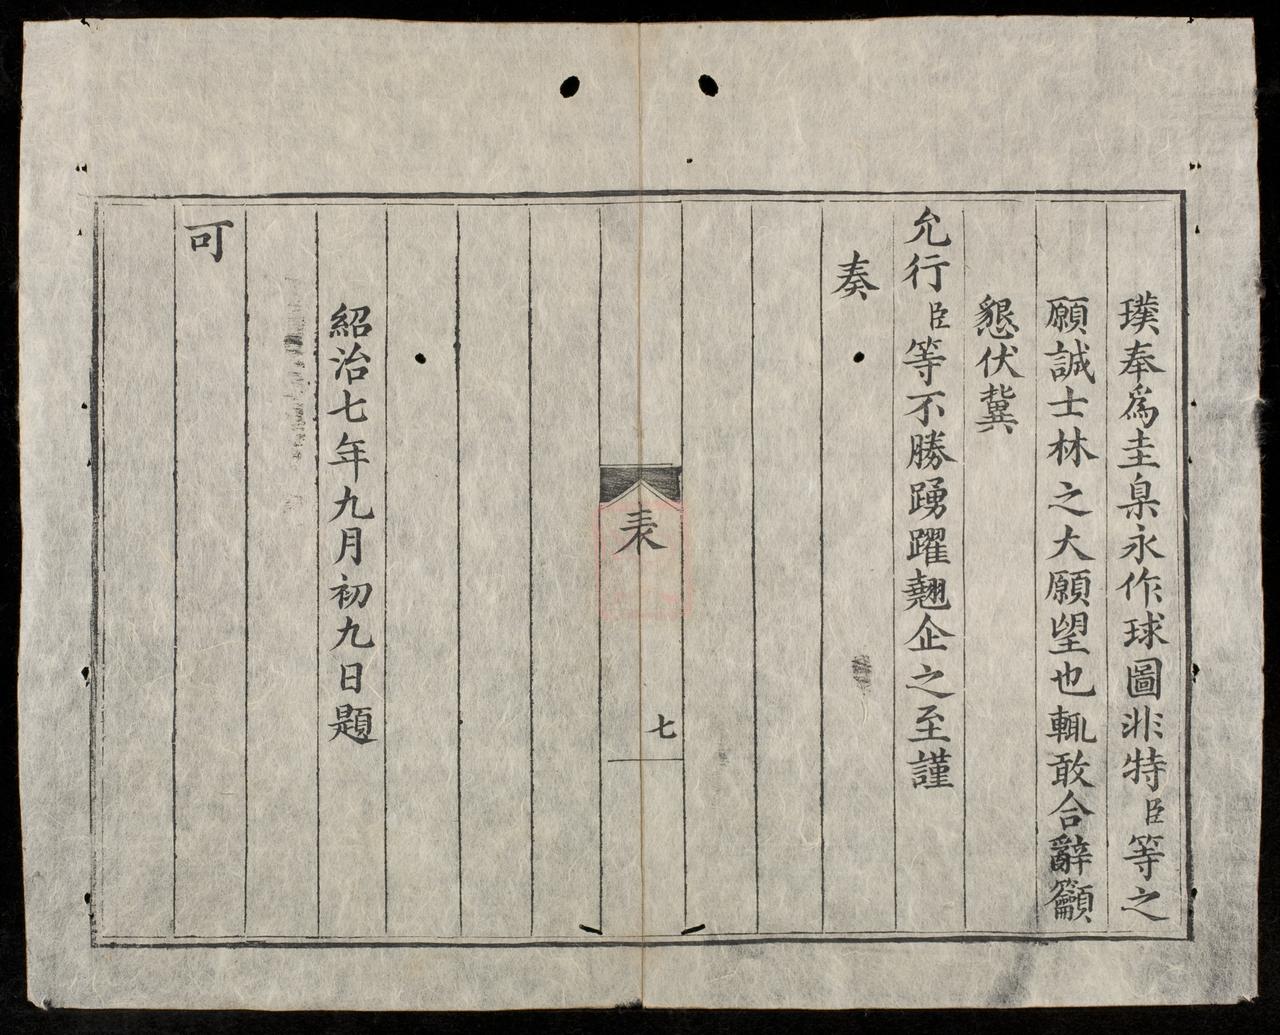 璞奉爲圭臬永作球圖非特臣等之
願誠士林之大願望也輒敢合辭籲
懇伏冀
允行臣等不勝踴躍翹企之至謹
奏
表
七
紹治七年九月初九日題
可